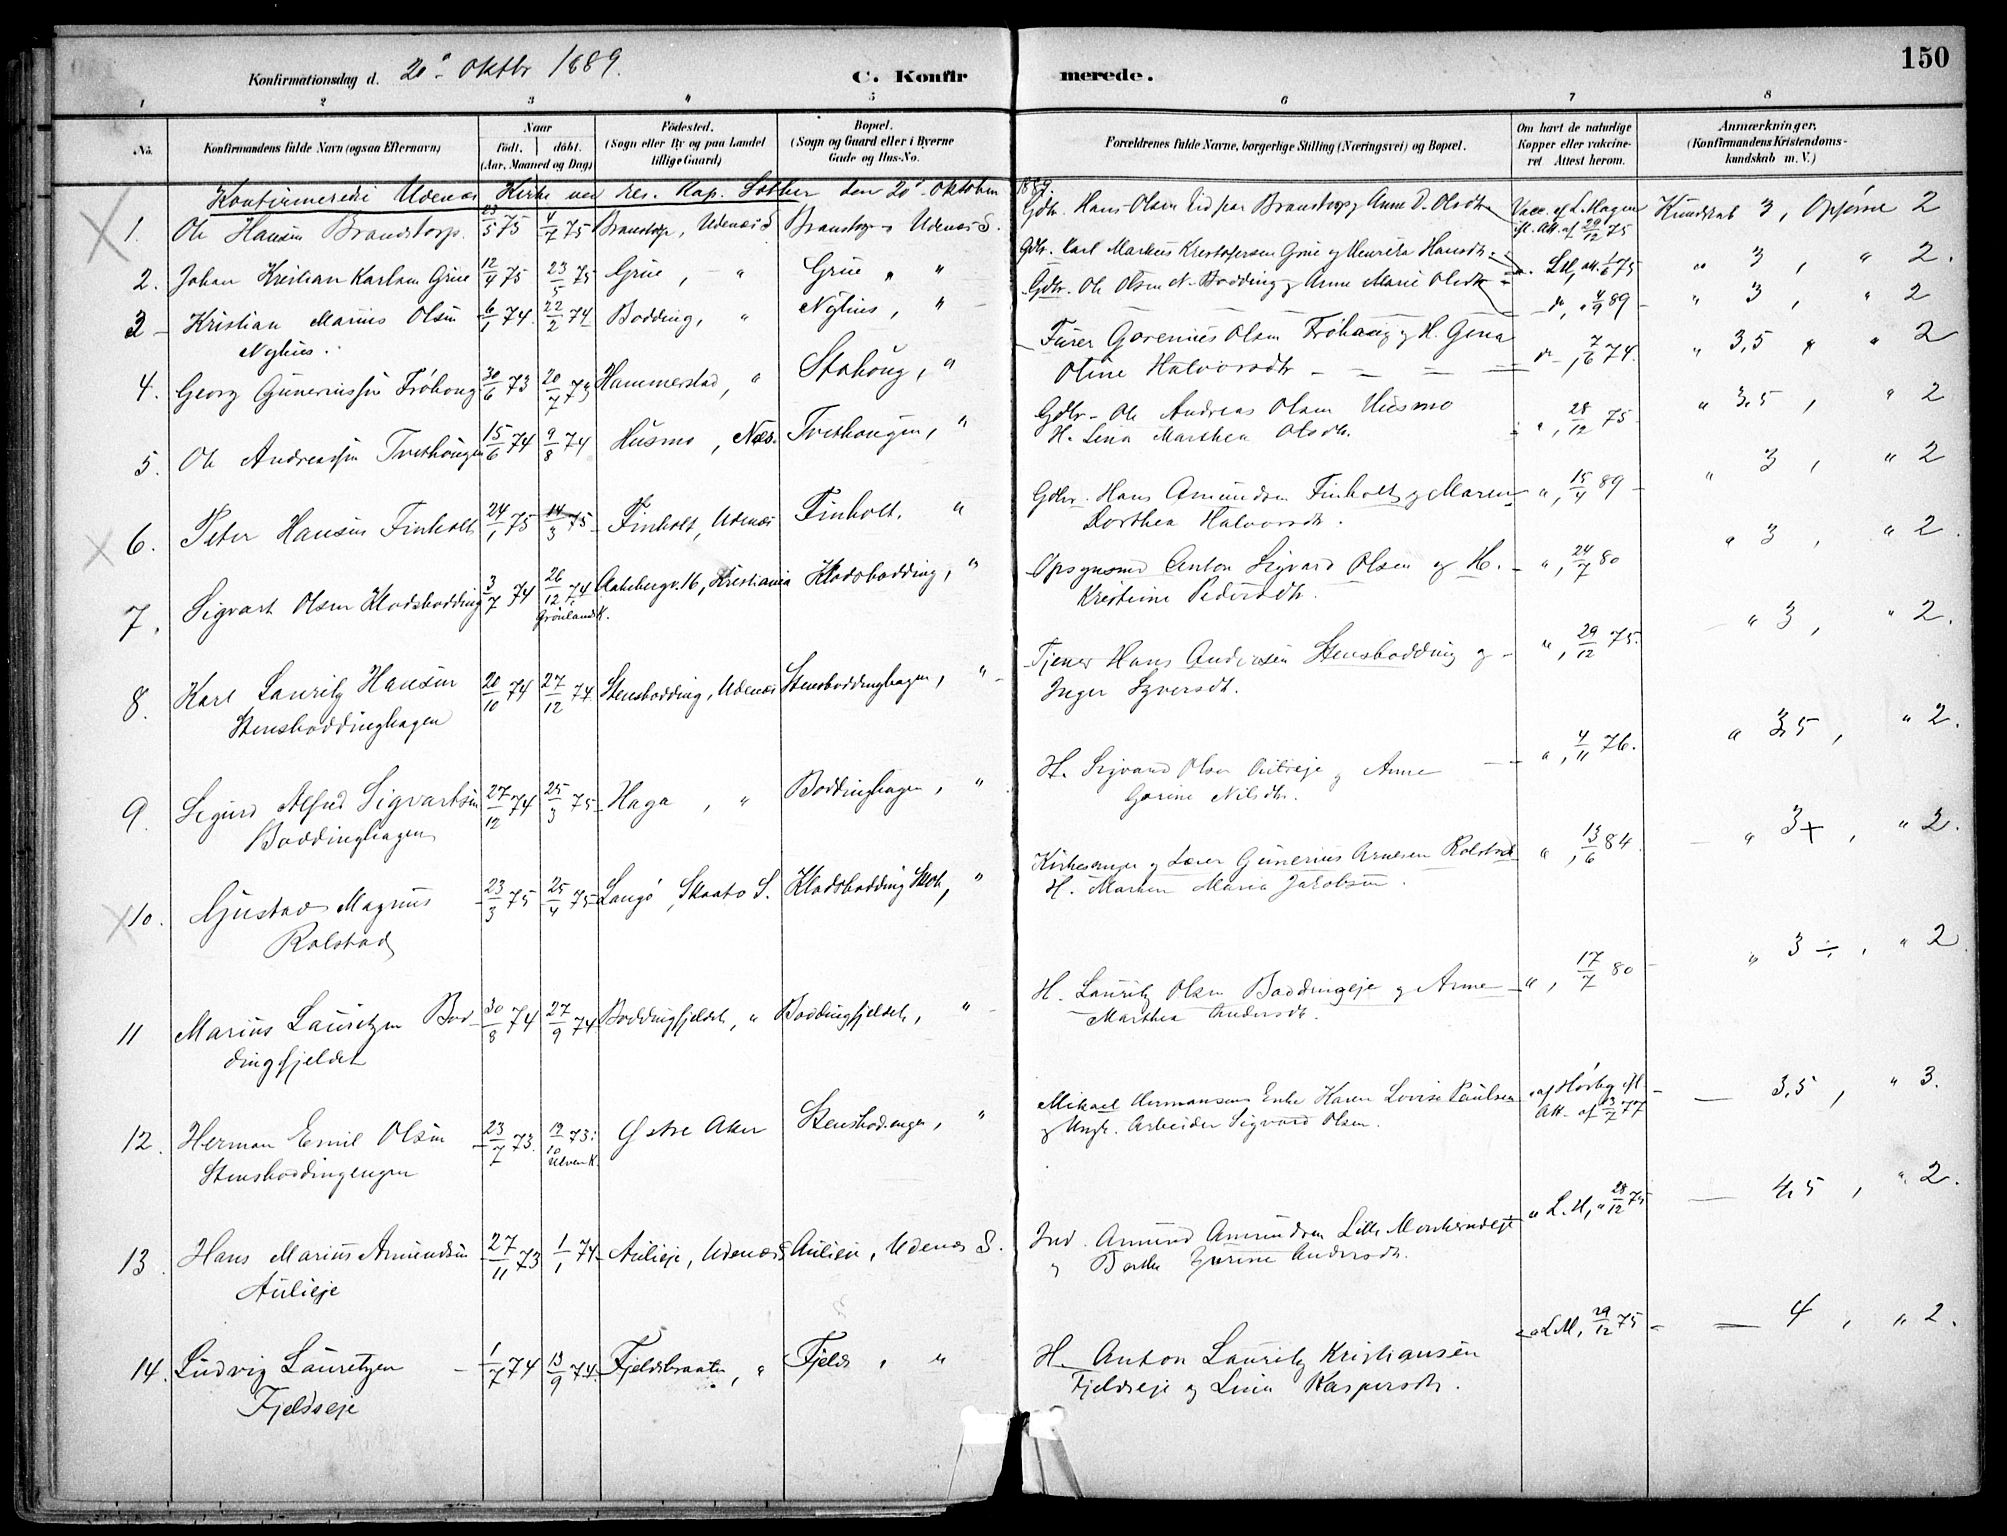 150
Konfirmationsdag d. 20de Oktbr 1889.
C. Konfirmerede.
1 2 3 4 5 6 7 8
No. Konfirmandens fulde Navn (ogsaa Efternavn) Naar født. døbt. (Aar, Maaned og Dag) Fødested. (Sogn eller By og paa Landet tillige Gaard) Bopæl. (Sogn og Gaard eller i Byerne Gade og Hus-No. Forældrenes fulde Navne, borgerlige Stilling (Næringsvei) og Bopæl. Om havt de naturlige Kopper eller vaccineret Attest herom. Anmærkninger. (Konfirmandens Kristendomskundskab m. V.)
Konfirmerede i Udenæs Kirke ved res. Kap. den 20de Oktober 1889.
1. Ole Hansen Branstorp. 23/5 75 4/7 75 Branstorp, Udenæs S. Branstorp Udenæs S. Gdbr. Hans Olsen Branstorp og Anne D. Olsdtr Vacc. af L. Hagen ifl. Att. af 29/12 75 Kundskab 3, Opførsel 2
2. Johan Kristian Karlsen Grue 12/4 75 23/5 75 Grue, " Grue " " Gdbr. Karl Markus Kristofersen Grue og Henrikke Hansdtr. L.H, att. 1/6 75 " 3, " 2.
3 Kristian Marius Olsen 6/1 74. 22/2 74 Bodding, " Nyhus, " Gdbr. Ole Olsen N. Bodding og Anne Marie Olsdtr " 4/9 89 " 3, " 2
Nyhus.
4. Georg Gunerinssen Frøhoug 30/6 73 20/7 73 Hammerstad, " Stohoug, " Furer Gorenius Olsen Frøhaug og H. Gina 7/6 74. " 3,5 " " 2
Oline Halvorsdtr
5. Ole Andreassen Tvethougen 15/6 74 9/8 74 Husmo, Næs. Tvethougen, " Gdbr. Ole Andreas Olsen Husmo ", 28/12 75 " 3,5, " 2
H. Lina Marthea Olsdtr.
6. Peter Hansen Finholt 24/1 75 14/3 75 Finholt, Udenæs Finholt. " Gdbr. Hans Amundsen Finholt og Maren ", 15/4 89 " 3, " 2
Dorthea Halvorsdtr.
7. Sigvart Olsen Klodsbodding 3/7 74 26/12 74 Grønlands K. Aakebergv. 16, Kristiania Klodsbodding, " Opsynsmd Anton Sigvard Olsen og H. ", 24/7 80 " 3, " 2.
Kristine Pedersdtr.
8. Karl Lauritz Hansen 20/10 74 27/12 74 Stensbodding, Udenæs Stensboddinghagen, " Tjener Hans Andersen Stensbodding og ", 29/12 75. " 3, " 2.
Stensboddinghagen Inger Syversdt.
9. Sigurd Alfred Sigvartsen 27/12 74 25/3 75 Haga, " Boddinghagen, " H. Sigvard Olsen og Anne ", 4/11 76. " 3,5, " 2.
Boddinghagen Gorine Nilsdtr.
10. Gustav Magnus 23/3 75 25/4 75 Langø, Skaatø S. Klodsbodding Skole, " Kirkesanger og Lærer Gunerius Arnesen Rolstad ", 13/6 84. " 3+, " 2.
Rolstad H. Maren Maria Jakobsen.
11 Marius Lauritzen Bod- 30/8 74 27/9 74 Boddingfjeldet, " Boddingfjeldet, " H. Lauritz Olsen Boddingeje og Anne ", 17/7 80 " 3 ÷, " 2
dingfjeldet Marthea Andersdt.
12. Herman Emil Olsen 23/7 73. 19/10 73. Ulven K. Østre Aker Stensbod.engen, " Mikael Hermansens Enke Karen Lovise Paulsen " af Hørbye ifl. Att. af 13/7 77 3,5, " 3.
Stensboddingengen og Ungk. Arbeider Sigvard Olsen.
13. Hans Marius Amundsen 27/11 73 1/1 74 Aulieje, Udenæs S Aulieje, Udenæs S. Ind. Amund Amundsen Lille " L. H, " 28/12 75 4,5, " 2.
Aulieje og Berthe Andersdt.
14. Ludvig Lauritzen 1/7 74 13/9 74 Fjeldsbraaten, " Fjeld, " H. Anton Lauritz Kristiansen " L.M, 29/12 75 4, " 2.
Fjeldseje Fjeldseje og Lina Kaspersdtr.